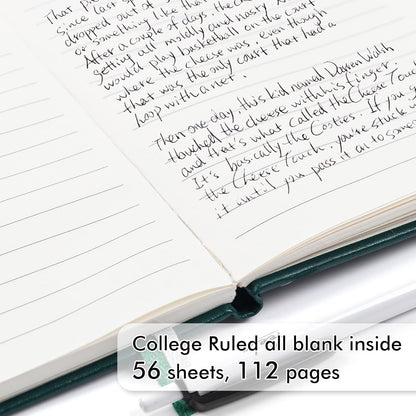 That p
Since last sp
dropped out of
or something like th
After a couple of days the che
getting all moldy and nasty. N
would play basketball on the court
where the cheese was, even though
that was the only court that had a
hoop with a net.
Then one day, this kid named Darren Walsh
touched the cheese with his finger,
and that's what called the Cheese Touch
It's basically the Cooties. If you g
the Cheese Touch, you're stuck
it until you pass it on to some
College Ruled all blank inside
56 sheets, 112 pages